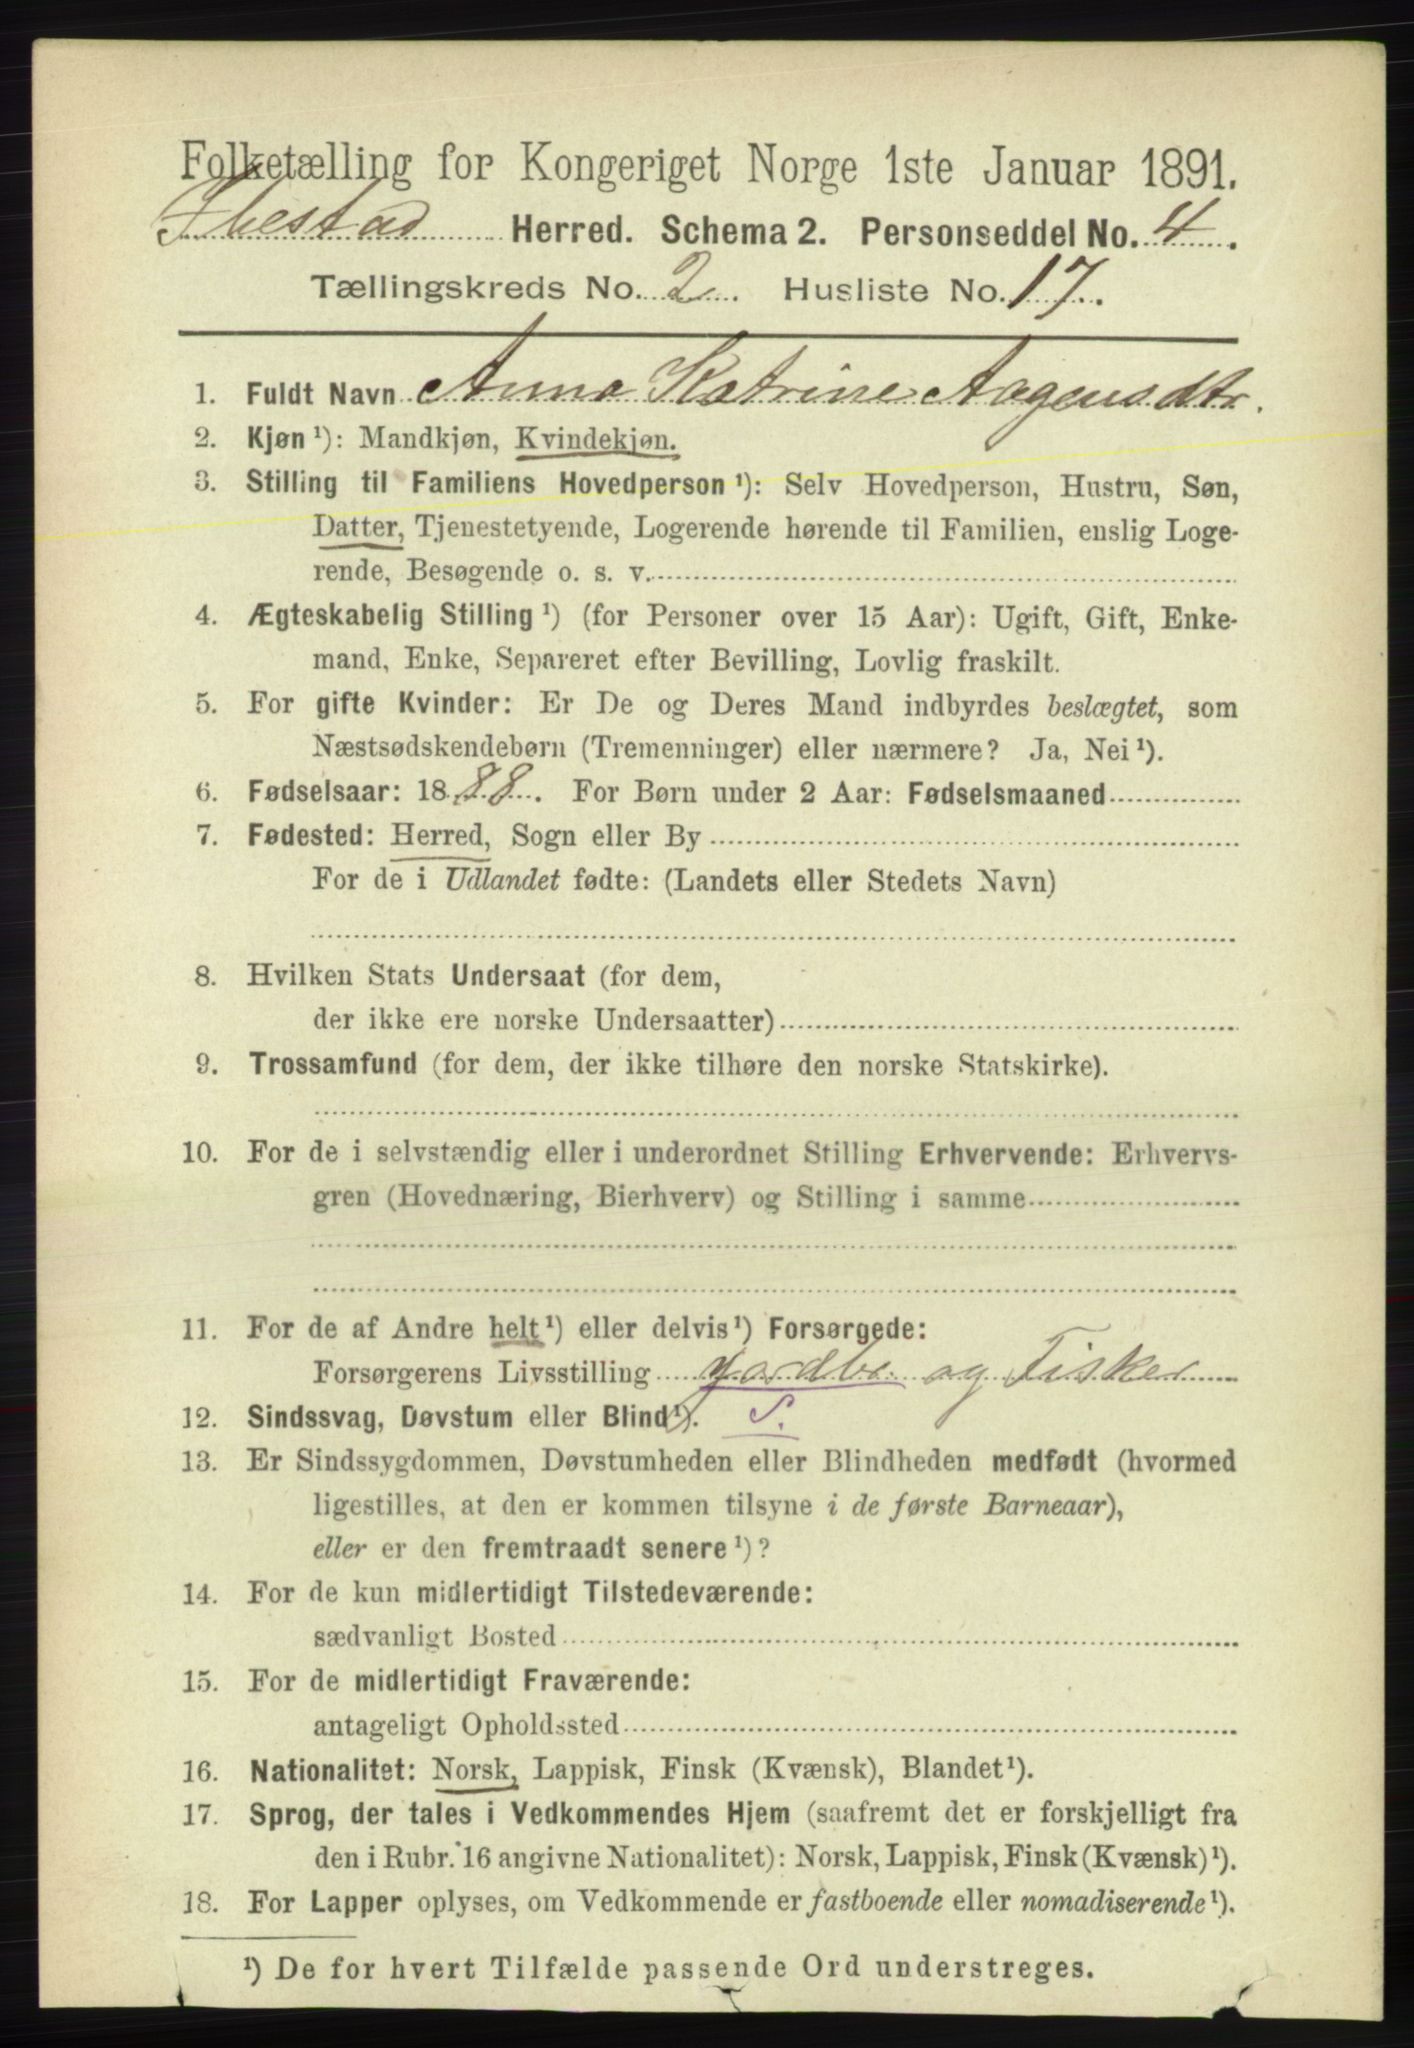 Folketælling for Kongeriget Norge 1ste Januar 1891.
Ibestad Herred. Schema 2. Personseddel No. 4.
Tællingskreds No. 2. Husliste No. 17.
1. Fuldt Navn Anna Katrine Aagensdtr.
2. Kjøn ¹): Mandkjøn, Kvindekjøn.
3. Stilling til Familiens Hovedperson ¹): Selv Hovedperson, Hustru, Søn,
Datter, Tjenestetyende, Logerende hørende til Familien, enslig Loge-
rende, Besøgende o. s. v.
4. Ægteskabelig Stilling ¹) (for Personer over 15 Aar): Ugift, Gift, Enke-
mand, Enke, Separeret efter Bevilling, Lovlig fraskilt.
5. For gifte Kvinder: Er De og Deres Mand indbyrdes beslægtet, som
Næstsødskendebørn (Tremenninger) eller nærmere? Ja, Nei ¹).
6. Fødselsaar: 1888. For Børn under 2 Aar: Fødselsmaaned
7. Fødested: Herred, Sogn eller By
For de i Udlandet fødte: (Landets eller Stedets Navn)
8. Hvilken Stats Undersaat (for dem,
der ikke ere norske Undersaatter)
9. Trossamfund (for dem, der ikke tilhøre den norske Statskirke).
10. For de i selvstændig eller i underordnet Stilling Erhvervende: Erhvervs-
gren (Hovednæring, Bierhverv) og Stilling i samme
11. For de af Andre helt ¹) eller delvis ¹) Forsørgede:
Forsørgerens Livsstilling Jordbr. og Fisker
12. Sindssvag, Døvstum eller Blind ¹). S.
13. Er Sindssygdommen, Døvstumheden eller Blindheden medfødt (hvormed
ligestilles, at den er kommen tilsyne i de første Barneaar),
eller er den fremtraadt senere ¹)?
14. For de kun midlertidigt Tilstedeværende:
sædvanligt Bosted
15. For de midlertidigt Fraværende:
antageligt Opholdssted
16. Nationalitet: Norsk, Lappisk, Finsk (Kvænsk), Blandet ¹).
17. Sprog, der tales i Vedkommendes Hjem (saafremt det er forskjelligt fra
den i Rubr. 16 angivne Nationalitet): Norsk, Lappisk, Finsk (Kvænsk) ¹).
18. For Lapper oplyses, om Vedkommende er fastboende eller nomadiserende ¹).
¹) De for hvert Tilfælde passende Ord understreges.